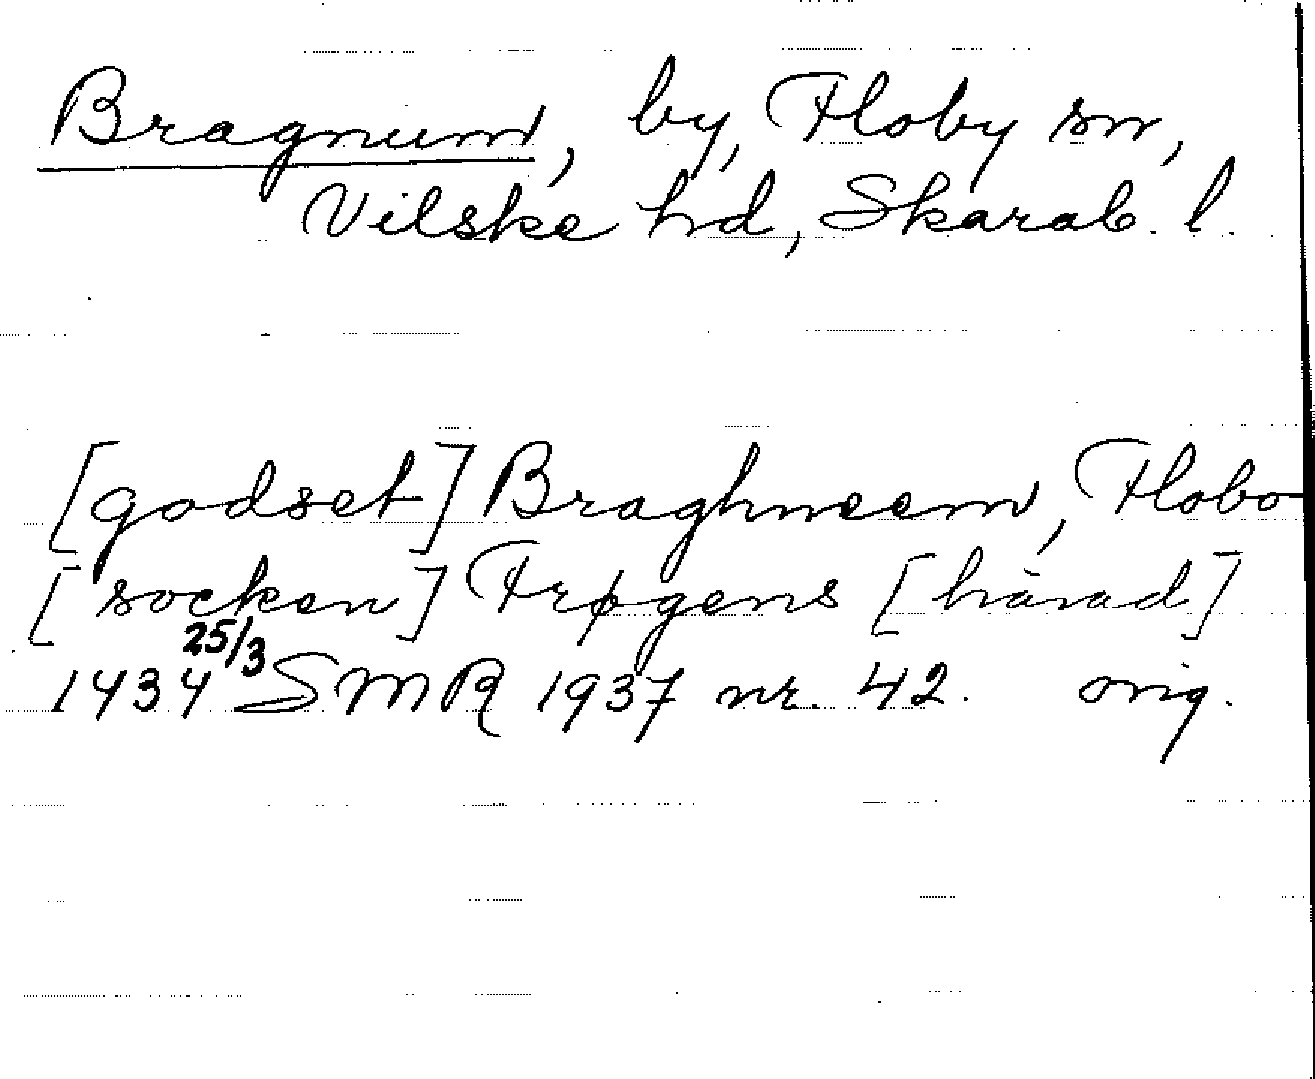 Bragnum, by, Floby sn,
Vilske hd, Skarab. l.
[godset] Braghneem, Flobo
[socken] Frøgens [härad]
1434 25/3 SMR 1937 nr. 42. orig.